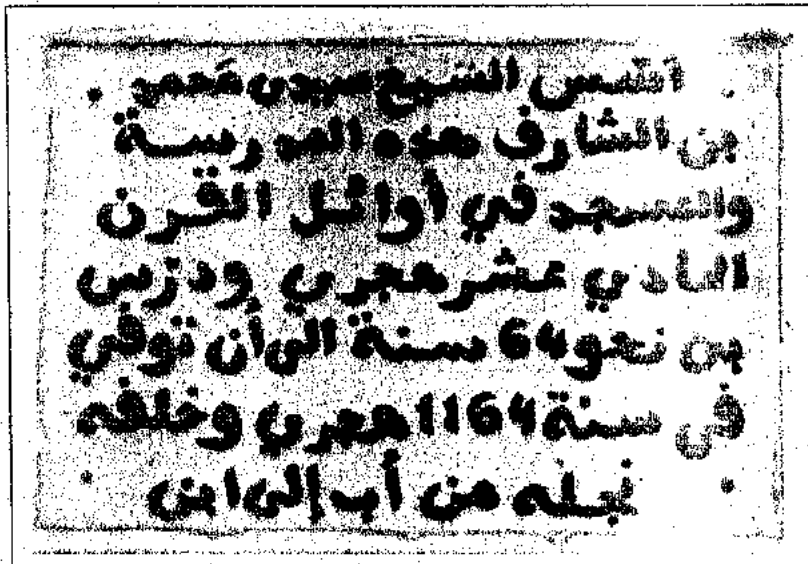 أسس الشيخ سيدي محمد
بن الشارف هذه المدرسة
والمسجد في أوائل القرن
الحادي عشر هجري ودرس
بن نحو 64 سنة الى أن توفي
في سنة 1164 هجري وخلفه
نجله من أب إلى ابن